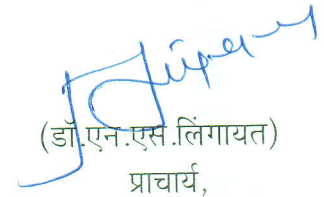 (डॉ.एन.एस.लिंगायत)
प्राचार्य,